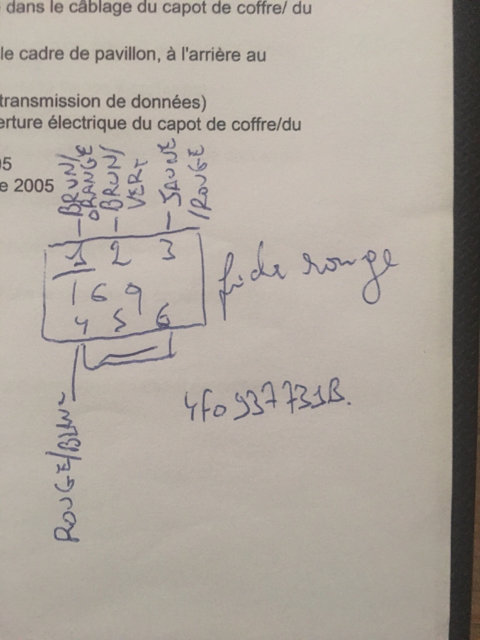 dans le câblage du capot de coffre/ du
le cadre de pavillon, à l'arrière au
transmission de données)
erture électrique du capot de coffre/du
05
e 2005
BRUN/
ORANGE
BRUN/
VERT
JAUNE
/ROUGE
1 2 3
1 6 9
4 5 6
fiche rouge
4F0937731B.
ROUGE/BLANC